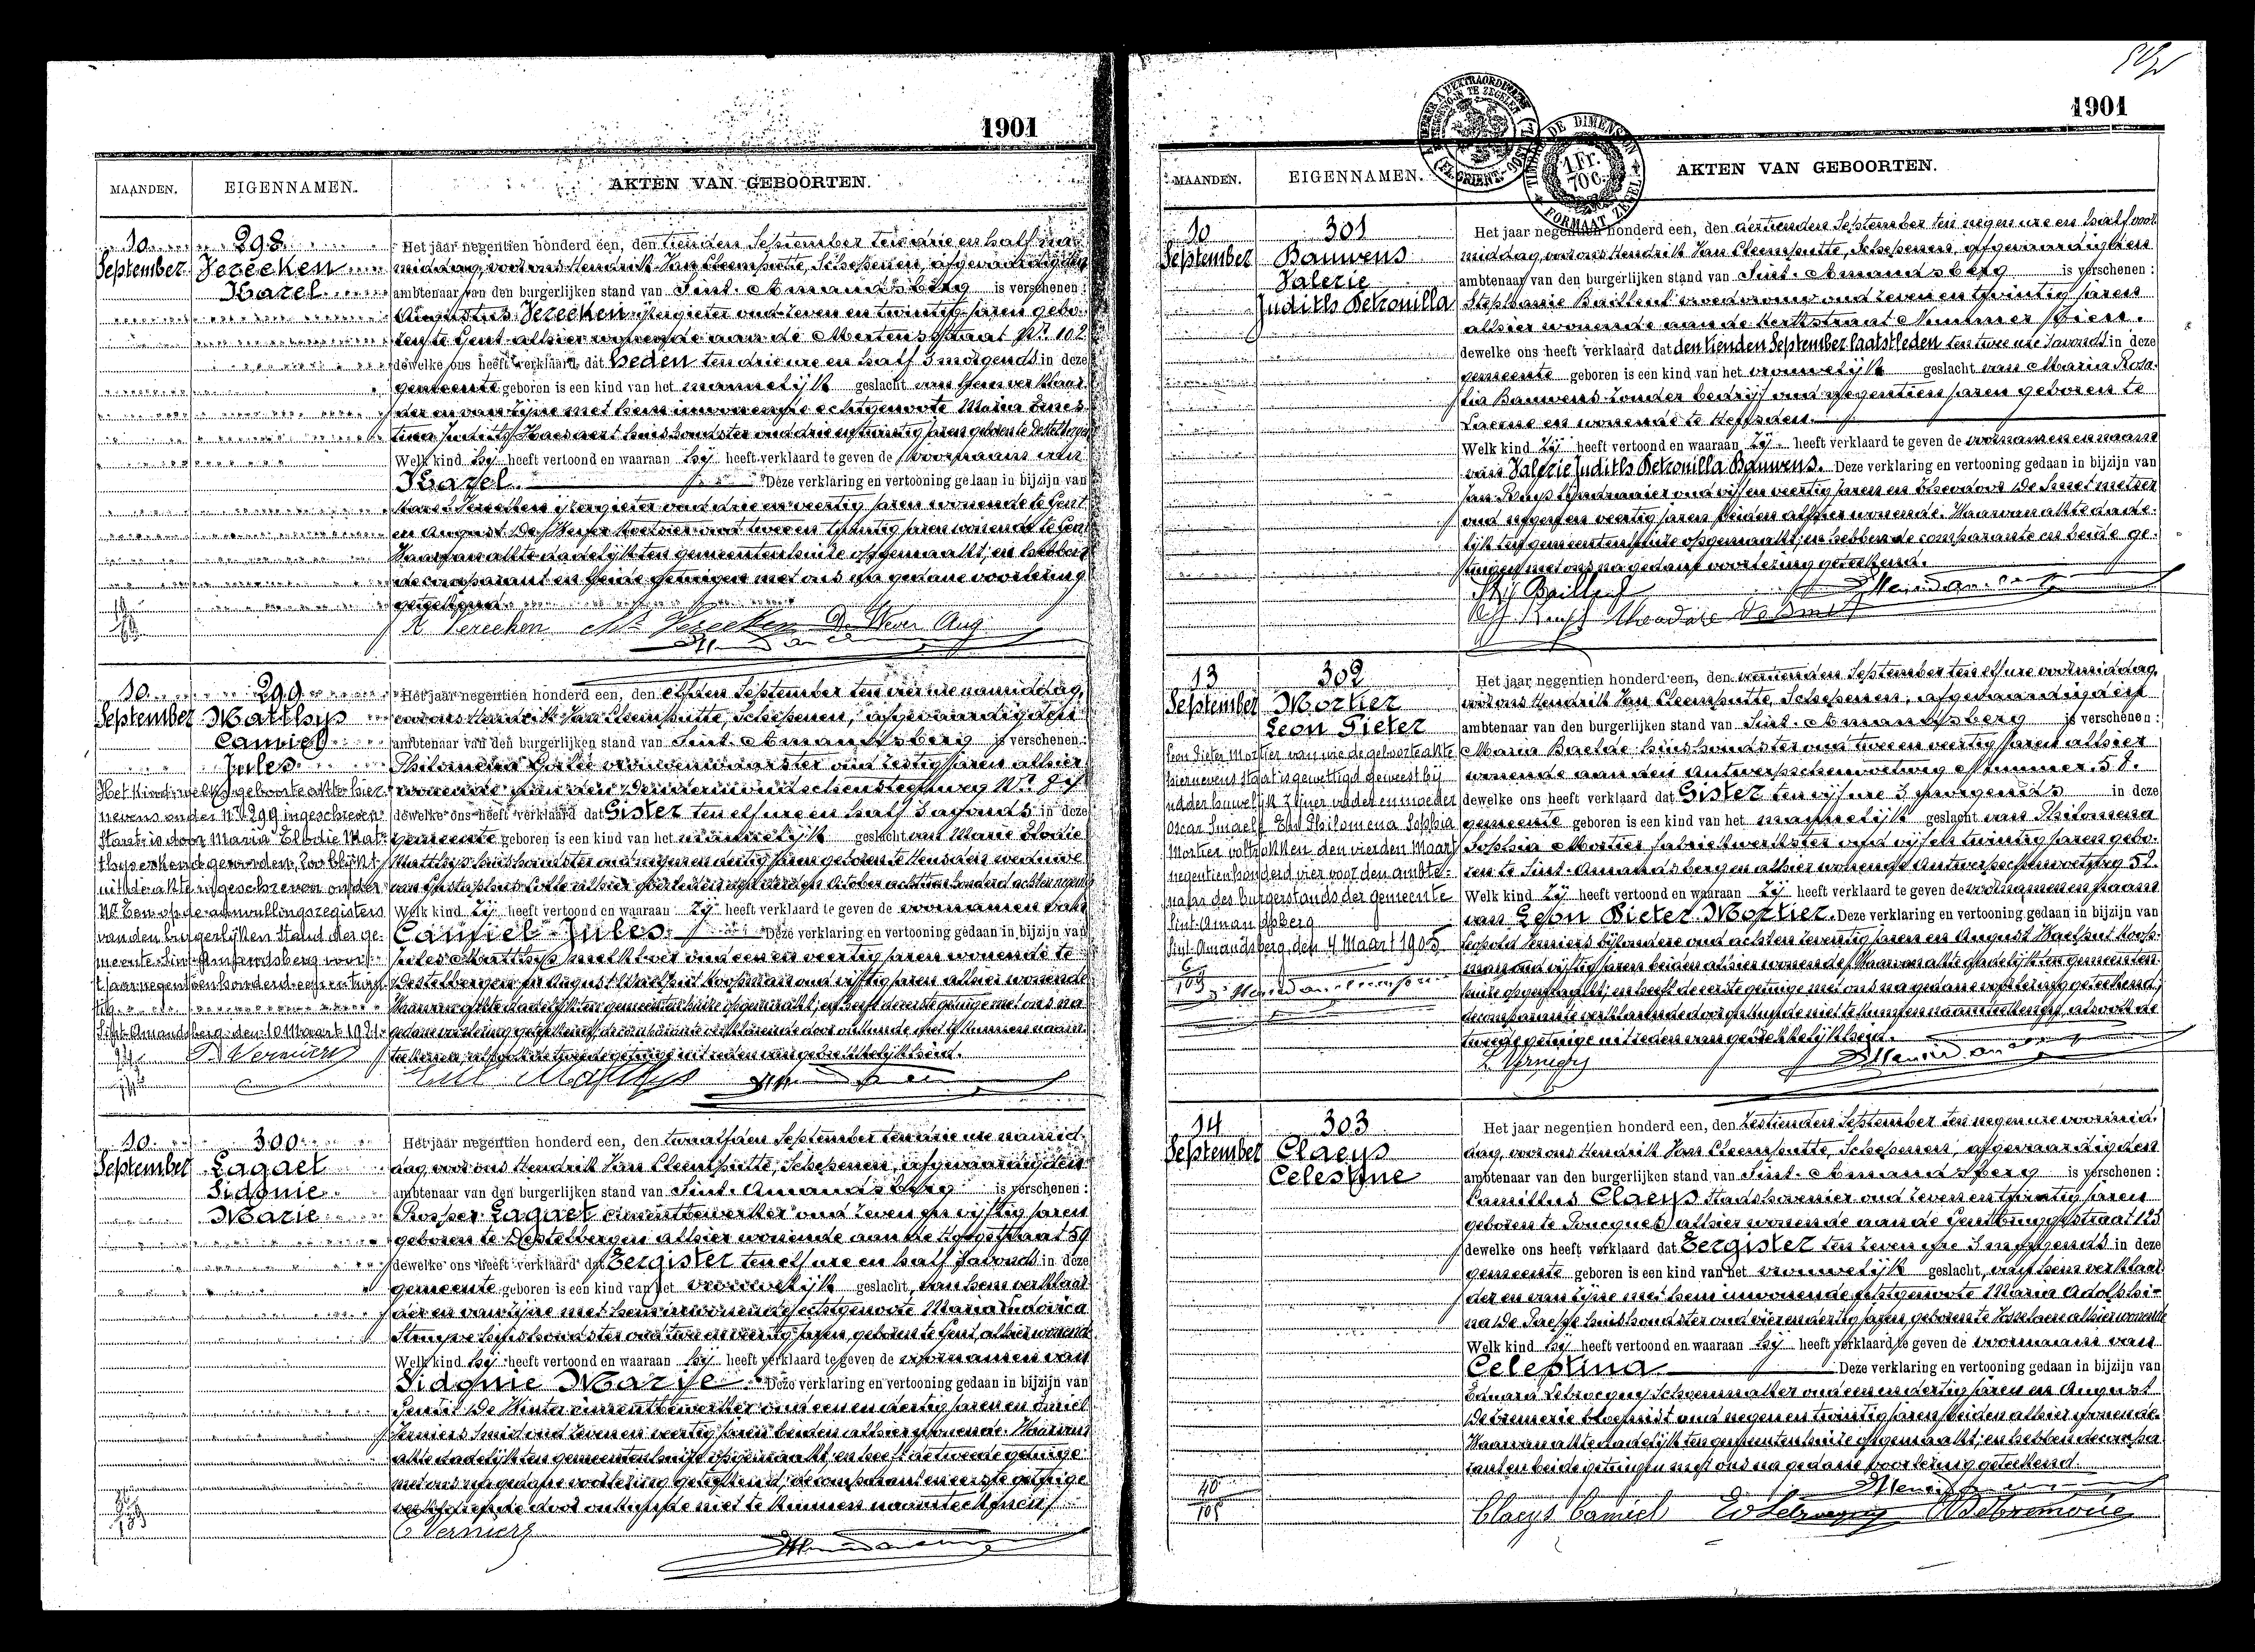 1901
MAANDEN. EIGENNAMEN. AKTEN VAN GEBOORTEN.
10 298 Het jaar negentien honderd een, den tienden September ten drie en half na
September Vereecken middag, voor ons Hendrik Jan Schepenen, afgevaardigden
Karel ambtenaar van den burgerlijken stand van Sint-Amandsberg is verschenen:
Augustus Vereecken ijzergieter oud zeven en twintig jaren gebo-
ren te Gent alhier wonende aan de Mertensstraat Nr 102
dewelke ons heeft verklaard dat heden ten drie ure en half 's morgends in deze
gemeente geboren is een kind van het mannelijk geslacht van hem verklaar-
der en van zijne met hem inwonende echtgenoote Maria Ernes-
tina Haesaert huishoudster oud drie en twintig jaren geboren te Destelbergen
Welk kind hij heeft vertoond en waaraan hij heeft verklaard te geven de voornaam van
Karel Deze verklaring en vertooning gedaan in bijzijn van
Vereecken ijzergieter oud drie en veertig jaren wonende te Gent
en August De Wever oud twee en twintig jaren wonende te Gent
Waarvan akte dadelijk ten gemeentenhuize opgemaakt, en hebben
de comparant en beide getuigen met ons na gedane voorlezing
geteekend.
A. Vereecken Vereecken De Wever Aug
10 299 Het jaar negentien honderd een, den elfden September ten vier ure namiddag,
September Matthys voor ons Hendrik Jan Schepenen, afgevaardigden
Camiel ambtenaar van den burgerlijken stand van Sint-Amandsberg is verschenen:
Jules Philomena vroedvrouw oud zestig jaren alhier
Het kind welks geboorteakte hier- wonende aan den steenweg Nr
nevens onder Nr 299 ingeschreven dewelke ons heeft verklaard dat Gister ten elf ure en half 's avonds in deze
staat is door Maria Elodie Mat- gemeente geboren is een kind van het mannelijk geslacht van Marie Elodie
thys erkend geworden, zoo blijkt Matthys huishoudster oud negen en dertig jaren geboren te Heusden weduwe
uit de akte ingeschreven onder van alhier overleden October achttien honderd acht en negentig
Nr Een op de aanvullingsregisters Welk kind Zij heeft vertoond en waaraan Zij heeft verklaard te geven de voornamen van
van den burgerlijken stand der ge- Camiel Jules Deze verklaring en vertooning gedaan in bijzijn van
meente Sint-Amandsberg voor Jules Matthys oud een en veertig jaren wonende te
't jaar negentien honderd een en twin- Destelbergen en August Waelput koopman oud vijftig jaren alhier wonende
tig. Waarvan akte dadelijk ten gemeentenhuize opgemaakt, en heeft de eerste getuige met ons na
Sint-Amandsberg den 10 Maart 1921. gedane voorlezing geteekend, de comparante verklarende door onkunde niet te kunnen naam-
teekenen, alsook de tweede getuige uit reden van gebrekkelijkheid.
Matthys
10 300 Het jaar negentien honderd een, den twaalfden September ten drie ure namid-
September Lagaet dag voor ons Hendrik Jan Schepenen, afgevaardigden
Sidonie ambtenaar van den burgerlijken stand van Sint-Amandsberg is verschenen:
Marie Prosper Lagaet cimentbewerker oud zeven en vijftig jaren
geboren te Destelbergen alhier wonende aan de Hoogstraat 59
dewelke ons heeft verklaard dat Eergister ten elf ure en half 's avonds in deze
gemeente geboren is een kind van het vrouwelijk geslacht, van hem verklaar-
der en van zijne met hem inwonende echtgenoote Maria Ludovica
huishoudster oud twee en veertig jaren, geboren te Gent alhier wonend
Welk kind hij heeft vertoond en waaraan hij heeft verklaard te geven de voornamen van
Sidonie Marie Deze verklaring en vertooning gedaan in bijzijn van
De Winter cimentbewerker oud een en dertig jaren en
Verniers Smid oud zeven en veertig jaren beiden alhier wonende. Waarvan
akte dadelijk ten gemeentenhuize opgemaakt, en heeft de tweede getuige
met ons na gedane voorlezing geteekend, de comparant en eerste getuige
verklarende door onkunde niet te kunnen naamteekenen
Verniers
1901
TIMBRE DE DIMENSION
1 Fr. 70 c.
FORMAAT ZEGEL
MAANDEN. EIGENNAMEN. AKTEN VAN GEBOORTEN.
10 301 Het jaar negentien honderd een, den dertienden September ten negen ure en half voor
September Bauwens middag, voor ons Hendrik Jan Schepenen, afgevaardigden
Valerie ambtenaar van den burgerlijken stand van Sint-Amandsberg is verschenen:
Judith Petronilla Stephanie vroedvrouw oud zeven en twintig jaren
alhier wonende aan de Kerkstraat Nummer
dewelke ons heeft verklaard dat den tienden September laatstleden ten twee ure 's avonds in deze
gemeente geboren is een kind van het vrouwelijk geslacht van Maria Rosa-
lia Bauwens zonder bedrijf oud negentien jaren geboren te
Laerne en wonende te Heffsden.
Welk kind Zij heeft vertoond en waaraan Zij heeft verklaard te geven de voornamen en naam
van Valerie Judith Petronilla Bauwens. Deze verklaring en vertooning gedaan in bijzijn van
Jan oud vijf en veertig jaren en Theodoor De Smet metser
oud negen en veertig jaren beiden alhier wonende. Waarvan akte dade-
lijk ten gemeentenhuize opgemaakt, en hebben de comparante en beide ge-
tuigen met ons na gedane voorlezing geteekend.
Theodore De Smet
13 302 Het jaar negentien honderd een, den veertienden September ten elf ure voormiddag,
September Mortier voor ons Hendrik Jan Schepenen, afgevaardigden
Leon Pieter ambtenaar van den burgerlijken stand van Sint-Amandsberg is verschenen:
Leon Pieter Mortier van wie de geboorteakte Maria Baelde huishoudster oud twee en veertig jaren alhier
hiernevens staat is gewettigd geweest bij wonende aan den Antwerpschenvoetweg Nummer
het huwelijk zijner vader en moeder dewelke ons heeft verklaard dat Gister ten vijf ure 's morgends in deze
Oscar en Philomena Sophia gemeente geboren is een kind van het mannelijk geslacht van Philomena
Mortier voltrokken den vierden Maart Sophia Mortier fabriekwerkster oud vijf en twintig jaren gebo-
negentien honderd vier voor den ambte- ren te Sint-Amandsberg en alhier wonende Antwerpschenvoetweg
naar des burgerstands der gemeente Welk kind Zij heeft vertoond en waaraan Zij heeft verklaard te geven de voornamen en naam
Sint-Amandsberg van Leon Pieter Mortier. Deze verklaring en vertooning gedaan in bijzijn van
Sint-Amandsberg, den 4 Maart 1905 Leopold Verniers bijzondere oud acht en zeventig jaren en August Waelput koop-
man oud vijftig jaren beiden alhier wonende. Waarvan akte dadelijk ten gemeenten-
huize opgemaakt, en heeft de eerste getuige met ons na gedane voorlezing geteekend,
de comparante verklarende door onkunde niet te kunnen naamteekenen, alsook de
tweede getuige uit reden van gebrekkelijkheid.
14 303 Het jaar negentien honderd een, den zestienden September ten negen ure voormid-
September Claeys dag, voor ons Hendrik Jan Schepenen, afgevaardigden
Celestine ambtenaar van den burgerlijken stand van Sint-Amandsberg is verschenen:
Camillus Claeys Stadshovenier oud zeven en twintig jaren
geboren te Poucques alhier wonende aan de Gentbruggestraat 123
dewelke ons heeft verklaard dat Eergister ten zeven ure 's morgends in deze
gemeente geboren is een kind van het vrouwelijk geslacht, van hem verklaar-
der en van zijne met hem inwonende echtgenoote Maria Adolphi-
na De Paepe huishoudster oud vier en dertig jaren, geboren te alhier wonende
Welk kind hij heeft vertoond en waaraan hij heeft verklaard te geven de voornaam van
Celestina Deze verklaring en vertooning gedaan in bijzijn van
Eduard Schoenmaker oud een en dertig jaren en August
bloemist oud negen en twintig jaren beiden alhier wonende.
Waarvan akte dadelijk ten gemeentenhuize opgemaakt, en hebben de compa-
rant en beide getuigen met ons na gedane voorlezing geteekend
Claeys Camiel